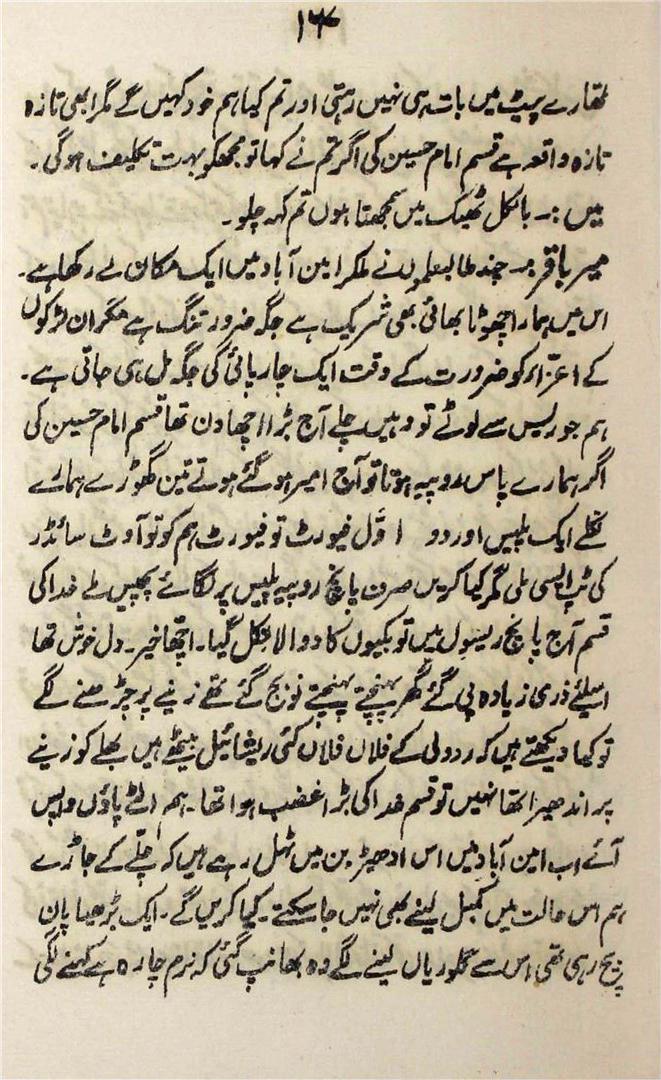 تمھارے پیٹ میں بات ہی نہیں رہتی اور تم کیا ہم خود کہیں گے مگر ابھی تازہ
تازہ واقعہ ہے قسم امام حسین کی اگر تم نے کہا تو مجھکو بہت تکلیف ہوگی ۔
میں :۔ بالکل ٹھیک میں سمجھتا ہوں تم کہہ چلو ۔
میر باقر :۔ چند طالبعلموں نے ملکر امین آباد میں ایک مکان لے رکھا ہے ۔
اس میں ہمارا چھوٹا بھائی بھی شریک ہے جگہ ضرور تنگ ہے مگر ان لڑکوں
کے اعزّاء کو ضرورت کے وقت ایک چارپائی کی جگہ مل ہی جاتی ہے ۔
ہم جو ریس سے لوٹے تو وہیں چلے آج بڑا اچھا دن تھا قسم امام حسین کی
اگر ہمارے پاس روپیہ ہوتا تو آج امیر ہو گئے ہوتے تین گھوڑے ہمارے
نکلے ایک پلیس اور دو اوّل فیورٹ تو فیورٹ ہم کو تو آوٹ سائڈر
کی ٹپ ایسی ملی مگر کیا کریں صرف پانچ روپیہ پلیس پر لگائے پچیس ملے خدا کی
قسم آج پانچ ریسوں میں تو بکیوں کا دوالا نکل گیا۔ اچھا خیر۔ دل خوش تھا
اسلئے ذری زیادہ پی گئے گھر پہنچتے پہنچتے نو بج گئے تھے زینے پر چڑھنے لگے
تو کیا دیکھتے ہیں کہ ردولی کے فلاں فلاں کئی ریشائیل بیٹھے ہیں بھلے کو زینے
پر اندھیرا تھا نہیں تو قسم خدا کی بڑا غضب ہوا تھا۔ ہم الٹے پاؤں واپس
آئے اب امین آباد میں اس ادھیڑ بن میں ٹہل رہے ہیں کہ چلّے کے جاڑے
ہم اس حالت میں کمبل لینے بھی نہیں جا سکتے ۔ کیا کریں گے ۔ ایک بڑھیا پان
بیچ رہی تھی اس سے گلوریاں لینے لگے وہ بھانپ گئی کہ نرم چارہ ہے کہنے لگی